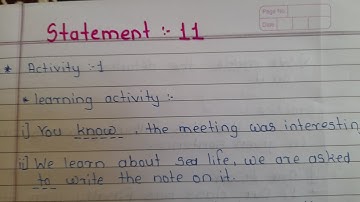 Page No.
Date
Statement :- 11
* Activity :- 1
* learning activity :-
i) You know, the meeting was interestin
ii) We learn about sea life, we are asked
to write the note on it.